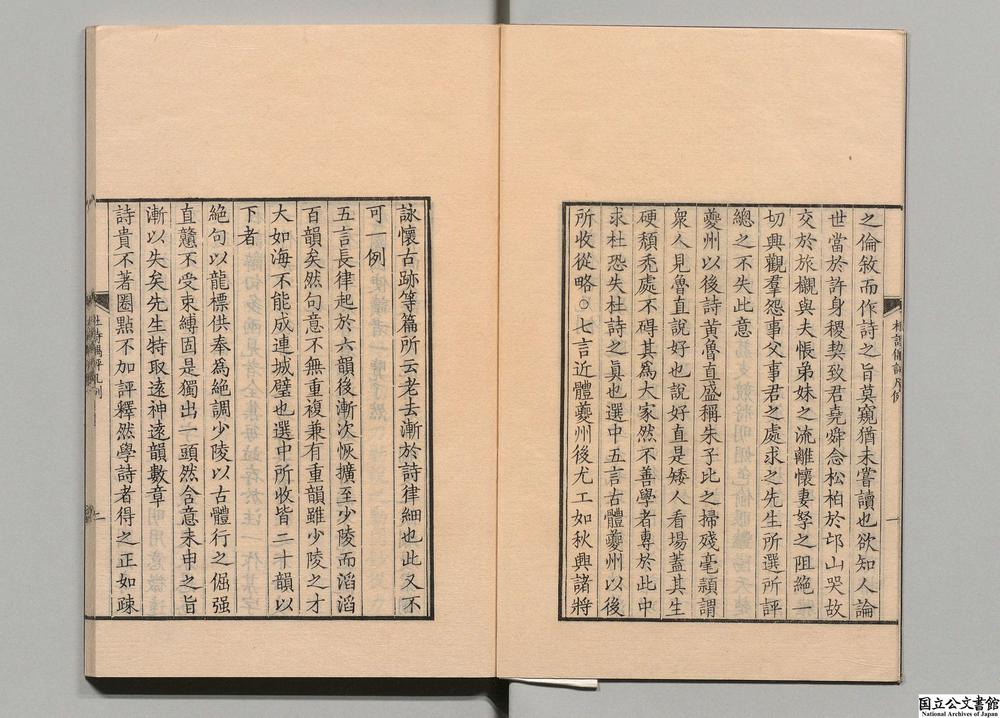 之倫敘而作詩之旨莫窺猶未嘗讀也欲知人論
世當於許身稷契致君堯舜念松柏於邙山哭故
交於旅櫬與夫悵弟妹之流離懷妻孥之阻絶一
切興觀羣怨事父事君之處求之先生所選所評
總之不失此意
夔州以後詩黄魯直盛稱朱子比之掃殘毫頴謂
衆人見魯直說好也說好直是矮人看場蓋其生
硬頹禿處不碍其爲大家然不善學者專於此中
求杜恐失杜詩之眞也選中五言古體夔州以後
所收從略○七言近體夔州後尤工如秋興諸將
詠懷古跡等篇所云老去漸於詩律細也此又不
可一例
五言長律起於六韻後漸次恢擴至少陵而滔滔
百韻矣然句意不無重複兼有重韻雖少陵之才
大如海不能成連城璧也選中所收皆二十韻以
下者
絕句以龍標供奉爲絕調少陵以古體行之倔强
直戇不受束縛固是獨出一頭然含意未申之旨
漸以失矣先生特取遠神遠韻數章
詩貴不著圈點不加評釋然學詩者得之正如疎
杜詩偶評凡例
一
杜詩偶評凡例
二
国立公文書館
National Archives of Japan